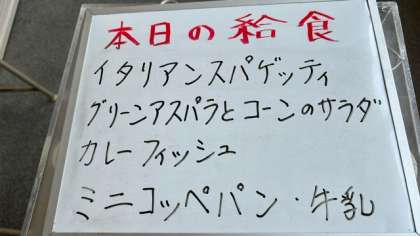 本日の給食
イタリアンスパゲッティ
グリーンアスパラとコーンのサラダ
カレーフィッシュ
ミニコッペパン・牛乳